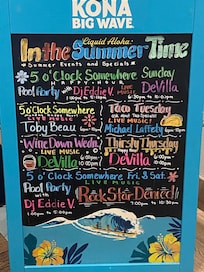 KONA
BIG WAVE
Liquid Aloha
In the Summer Time
Summer Events and Specials
5 o'Clock Somewhere Sunday
HAPPY HOUR
Pool Party with Dj Eddie V. LIVE MUSIC DeVilla
5 o'Clock Somewhere
LIVE MUSIC
Toby Beau
Taco Tuesday
LIVE MUSIC!
Michael Lafferty
Wine Down Weds!
LIVE MUSIC
DeVilla
Thirsty Thursday
LIVE MUSIC
DeVilla
5 o'Clock Somewhere Fri. & Sat.
LIVE MUSIC
Pool Party
with
Dj Eddie V.
1:00pm to 5:00pm
Rock Star Denied!
7:00pm to 10:30pm